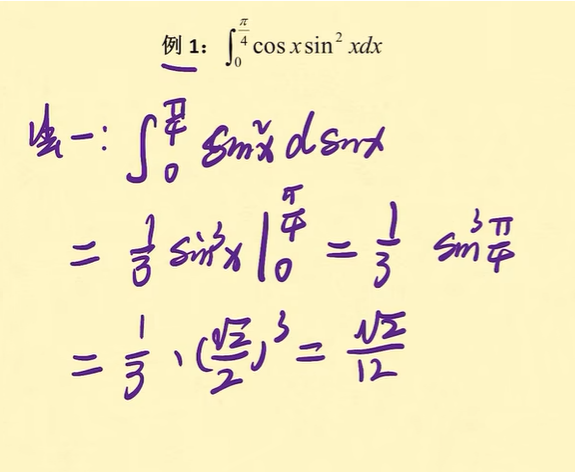 例 1： ∫₀^{π/4} cos x sin² xdx
法一: ∫₀^{π/4} sin²x dsinx
= 1/3 sin³x |₀^{π/4} = 1/3 sin³ π/4
= 1/3 · (√2/2)³ = √2/12